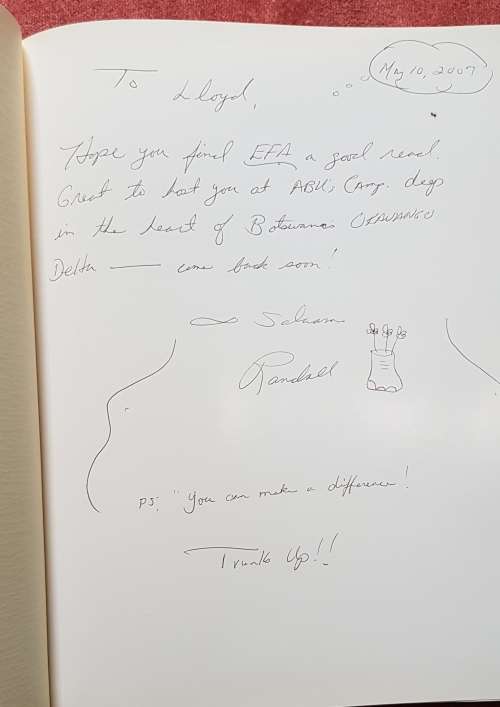 May 10, 2007
To
Lloyd,
Hope you find EFA a good read.
Great to host you at ABU Camp. deep
in the heart of Botswanas OKAVANGO
Delta — come back soon!
Randall
PS; "you can make a difference!
Trunks Up!!